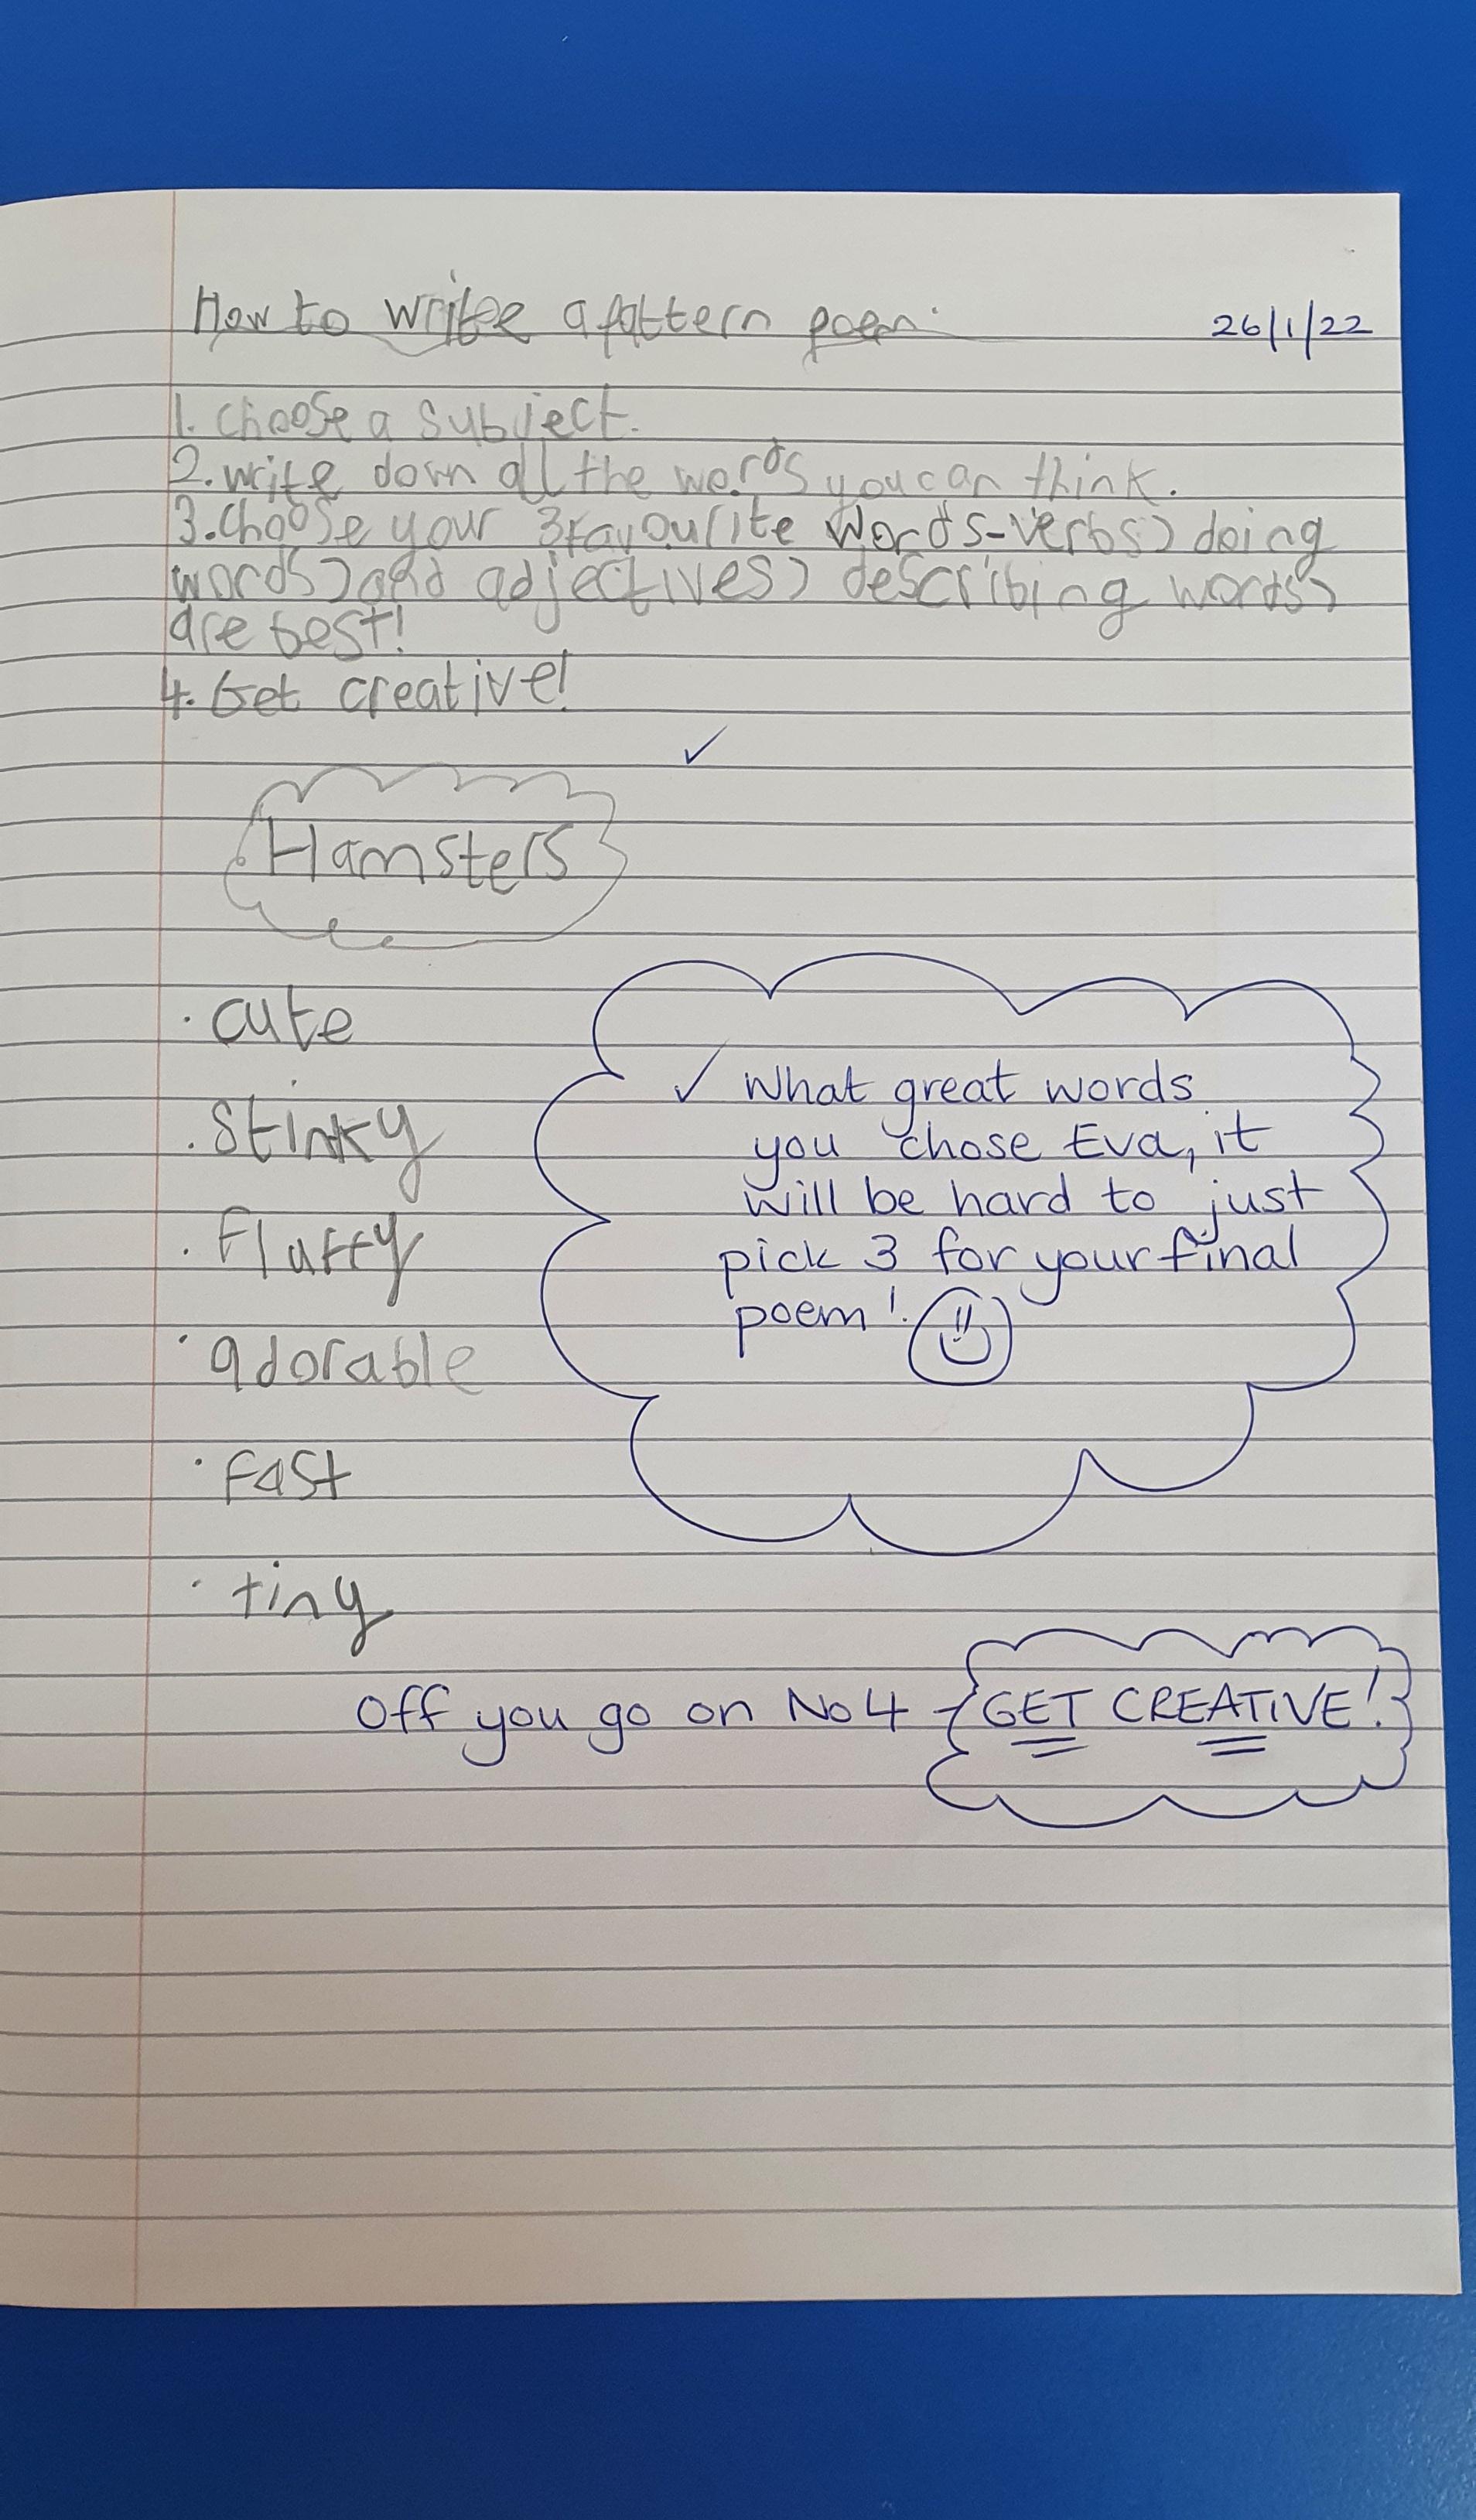 How to write a pattern poem. 26/1/22
1. choose a subject.
2. write down all the words you can think.
3. choose your 3 favourite words-verbs) doing
words) and adjectives) describing words)
are best!
4. Get creative!
Hamsters
· cute
· Stinky
· Fluffy
· adorable
· fast
· tiny
✓ What great words
you chose Eva, it
will be hard to just
pick 3 for your final
poem!
Off you go on No 4 - GET CREATIVE!